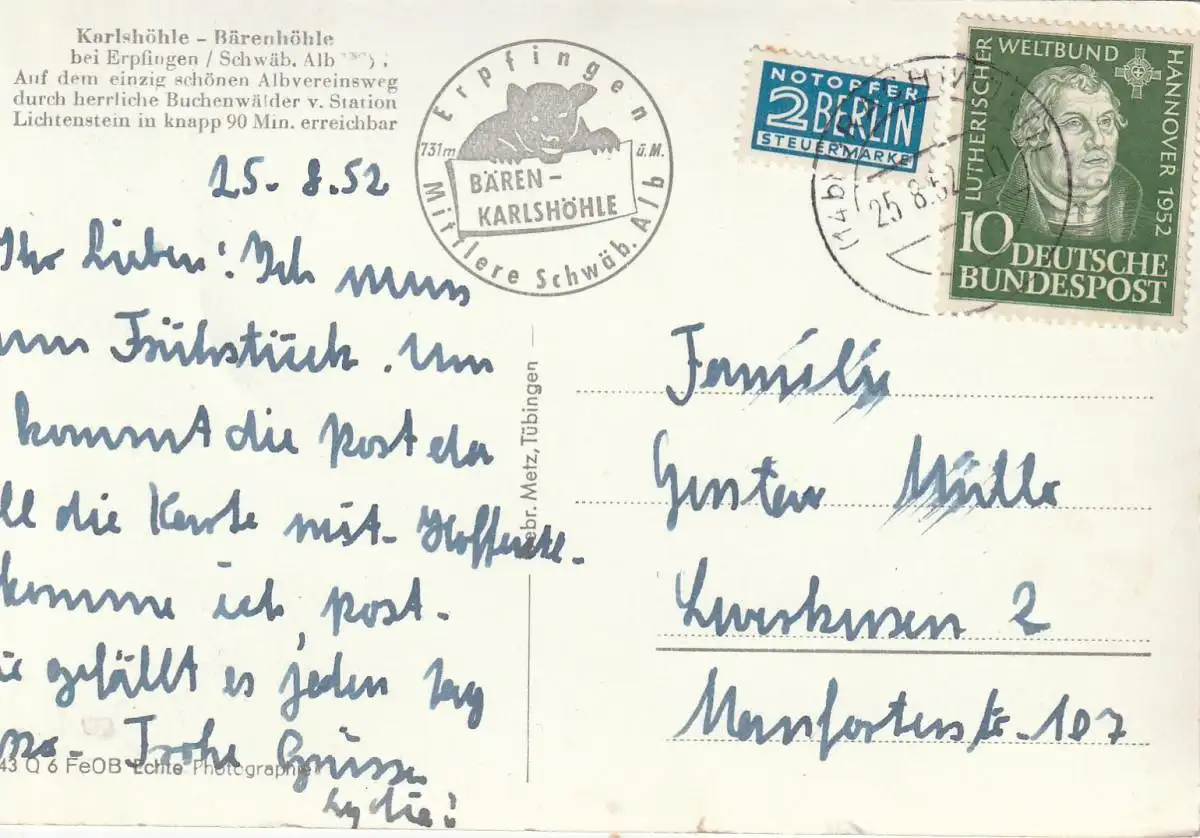 Karlshöhle – Bärenhöhle
bei Erpfingen / Schwäb. Alb
Auf dem einzig schönen Albvereinsweg
durch herrliche Buchenwälder v. Station
Lichtenstein in knapp 90 Min. erreichbar
Erpfingen
731m ü.M.
BÄREN-
KARLSHÖHLE
Mittlere Schwäb. Alb
NOTOPFER
2 BERLIN
STEUERMARKE
25.8.52
LUTHERISCHER WELTBUND HANNOVER 1952
10 DEUTSCHE
BUNDESPOST
25.8.52
Ihr Lieben! Ich muss
um Frühstück. Um
kommt die Post da
ll die Karte mit. Hoffentl.
komme ich Post.
ie gefällt es jeden Tag
Frohe Grüsse
Lydie!
ebr. Metz, Tübingen
Familie
Gustav Müller
Leverkusen 2
Manforterstr. 107
43 Q 6 FeOB Echte Photographie